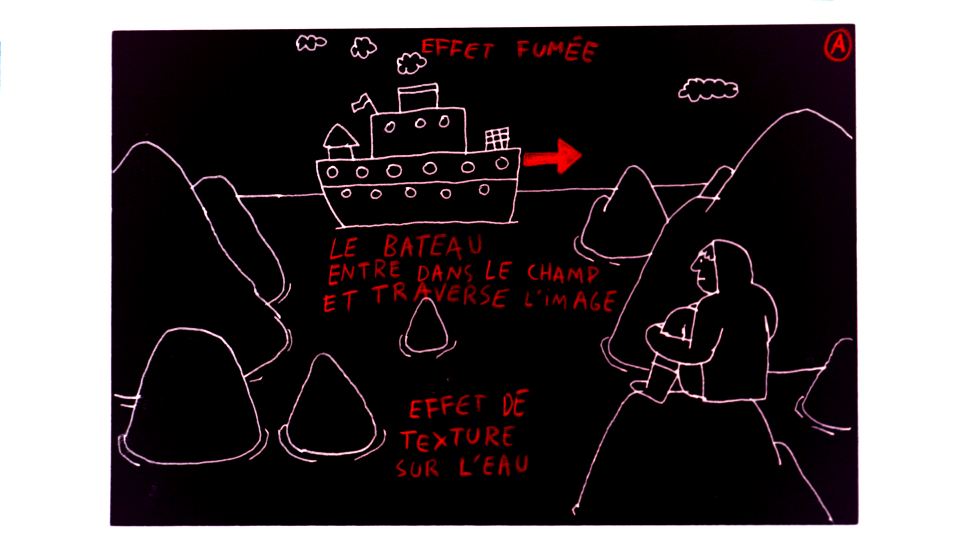 EFFET FUMÊE
A
LE BATEAU
ENTRE DANS LE CHAMP
ET TRAVERSE L'IMAGE
EFFET DE
TEXTURE
SUR L'EAU